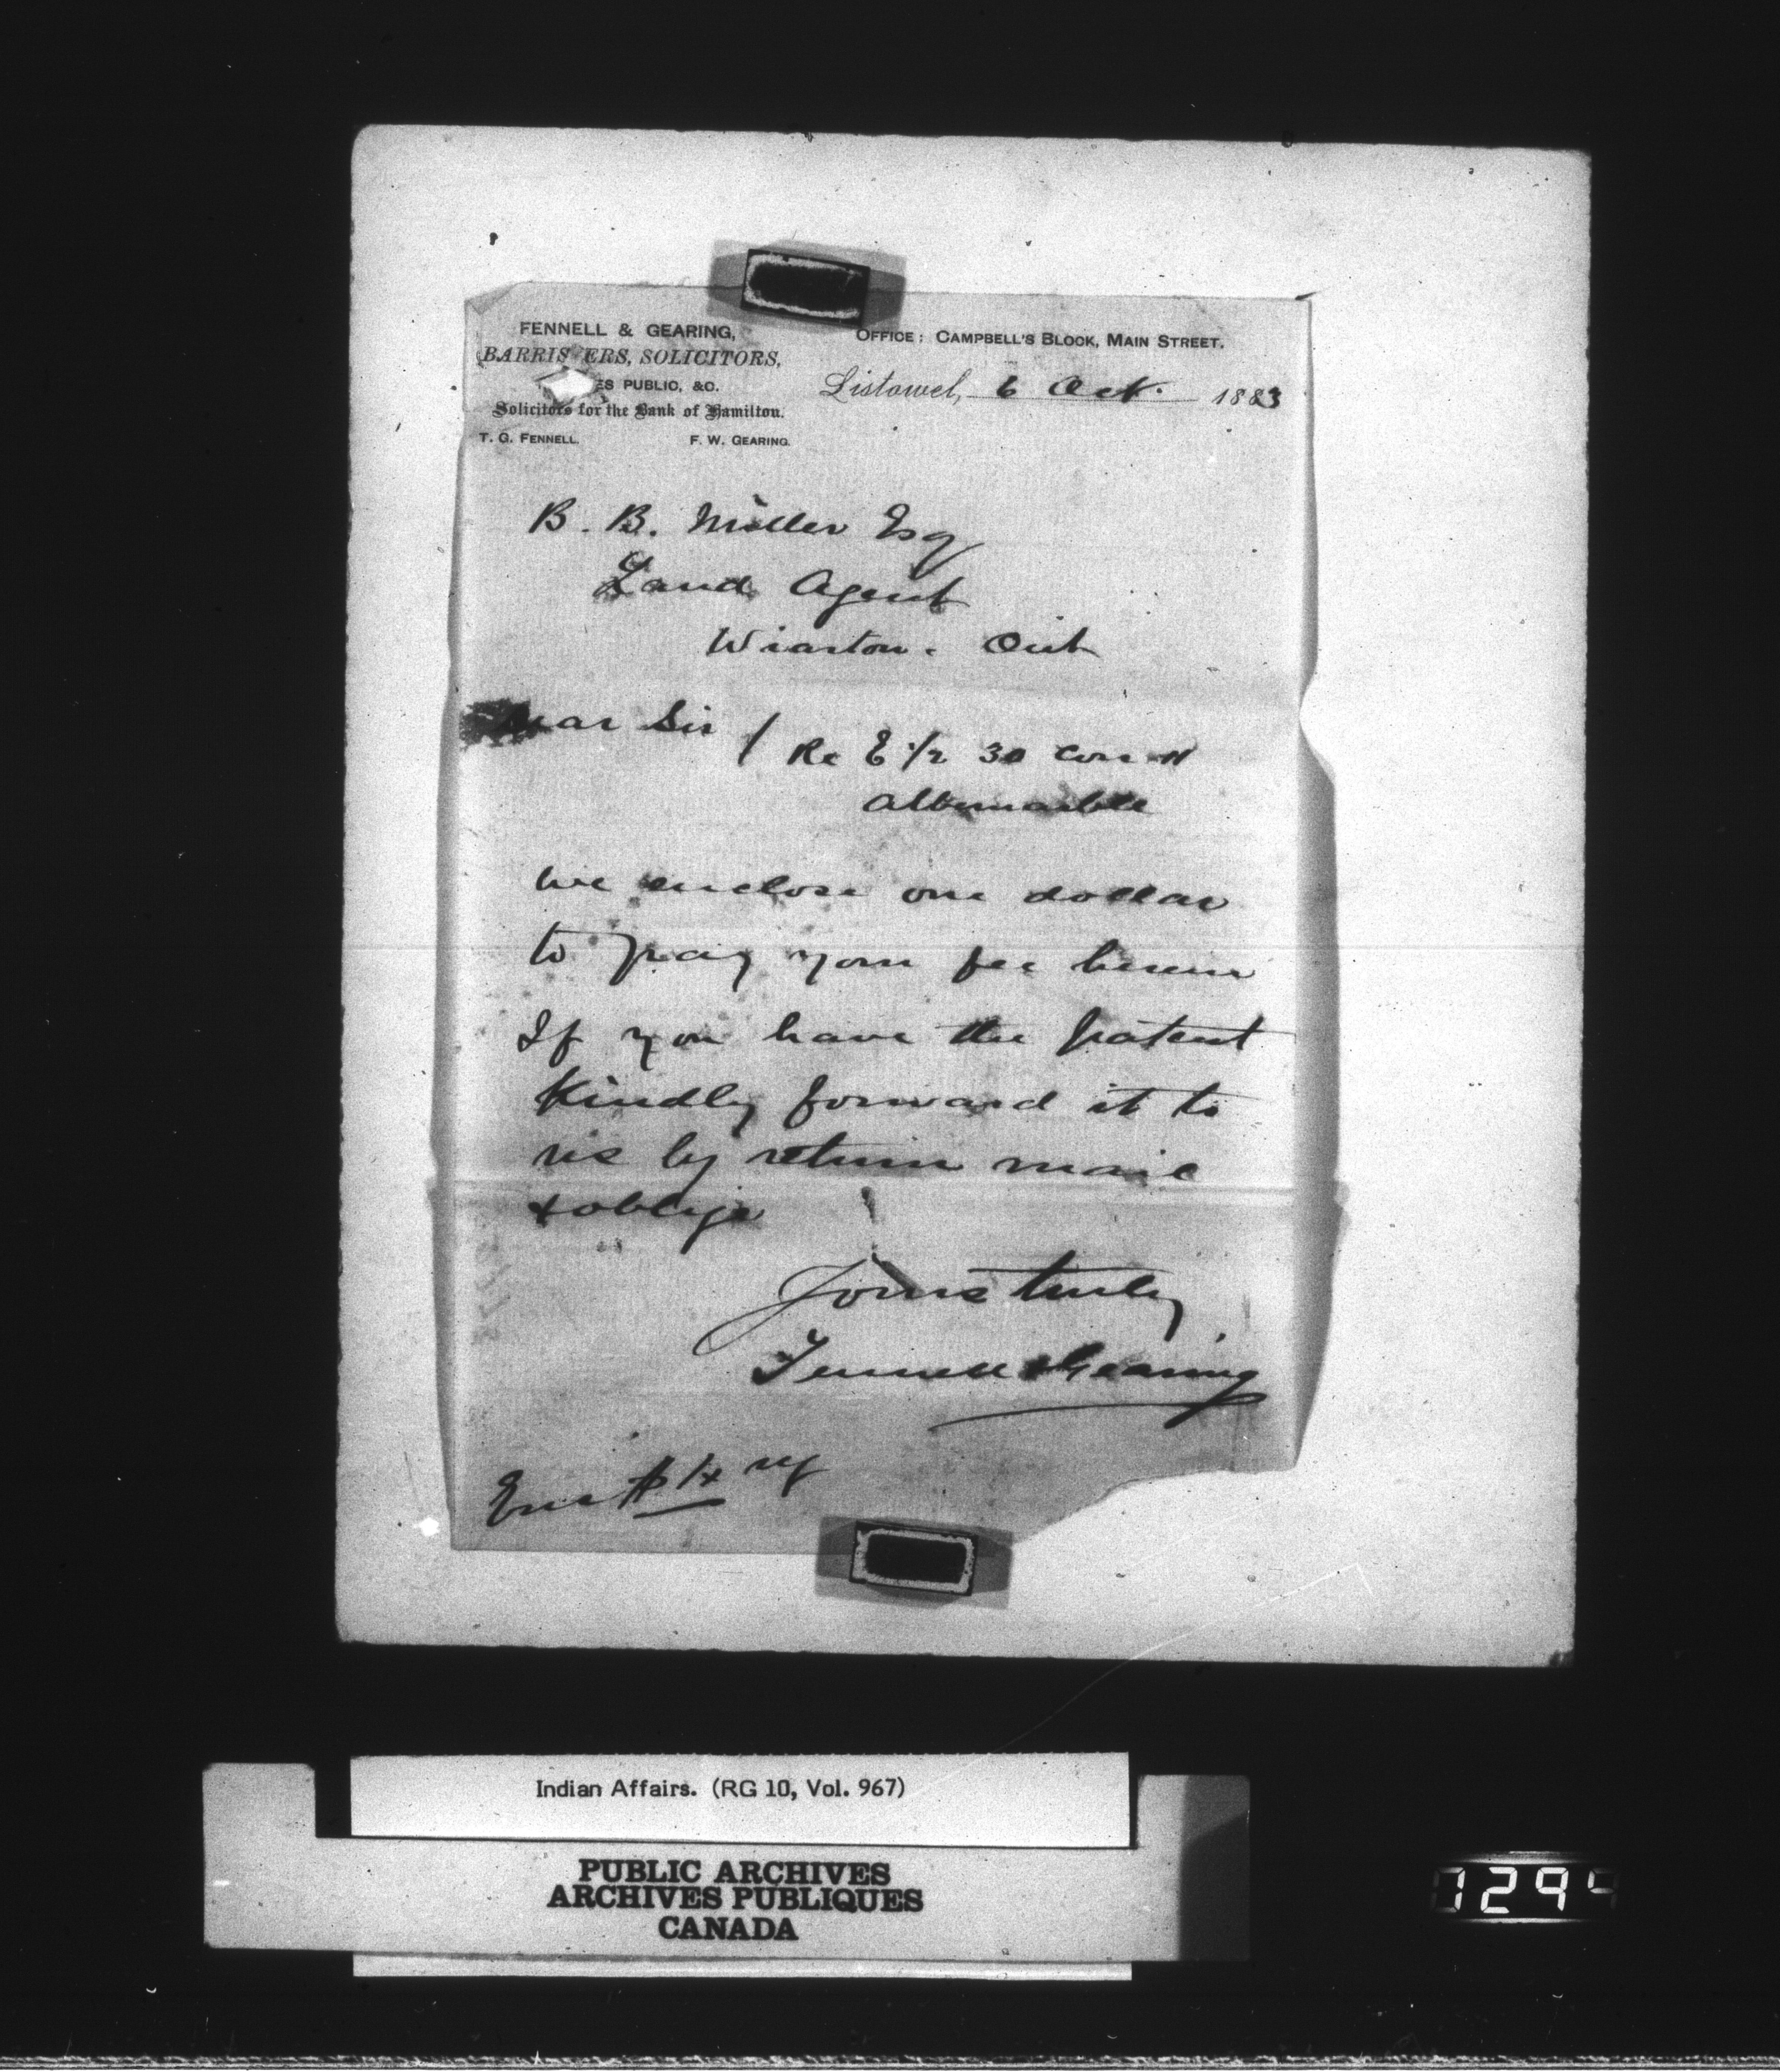 FENNELL & GEARING,
BARRIS ERS, SOLICITORS,
ES PUBLIC, &C.
Solicitors for the Bank of Hamilton.
T. G. FENNELL. F. W. GEARING.
OFFICE: CAMPBELL'S BLOCK, MAIN STREET.
Listowel, 6 Oct. 1883
B. B. Miller Esq
Land Agent
Wiarton. Ont
Dear Sir / Re E 1/2 30 Con 11
Albemarle
We enclose one dollar
to pay your fee herein
If you have the patent
Kindly forward it to
us by return mail
& oblige
Yours truly
Fennell & Gearing
Enc $1
Indian Affairs. (RG 10, Vol. 967)
PUBLIC ARCHIVES
ARCHIVES PUBLIQUES
CANADA
1299